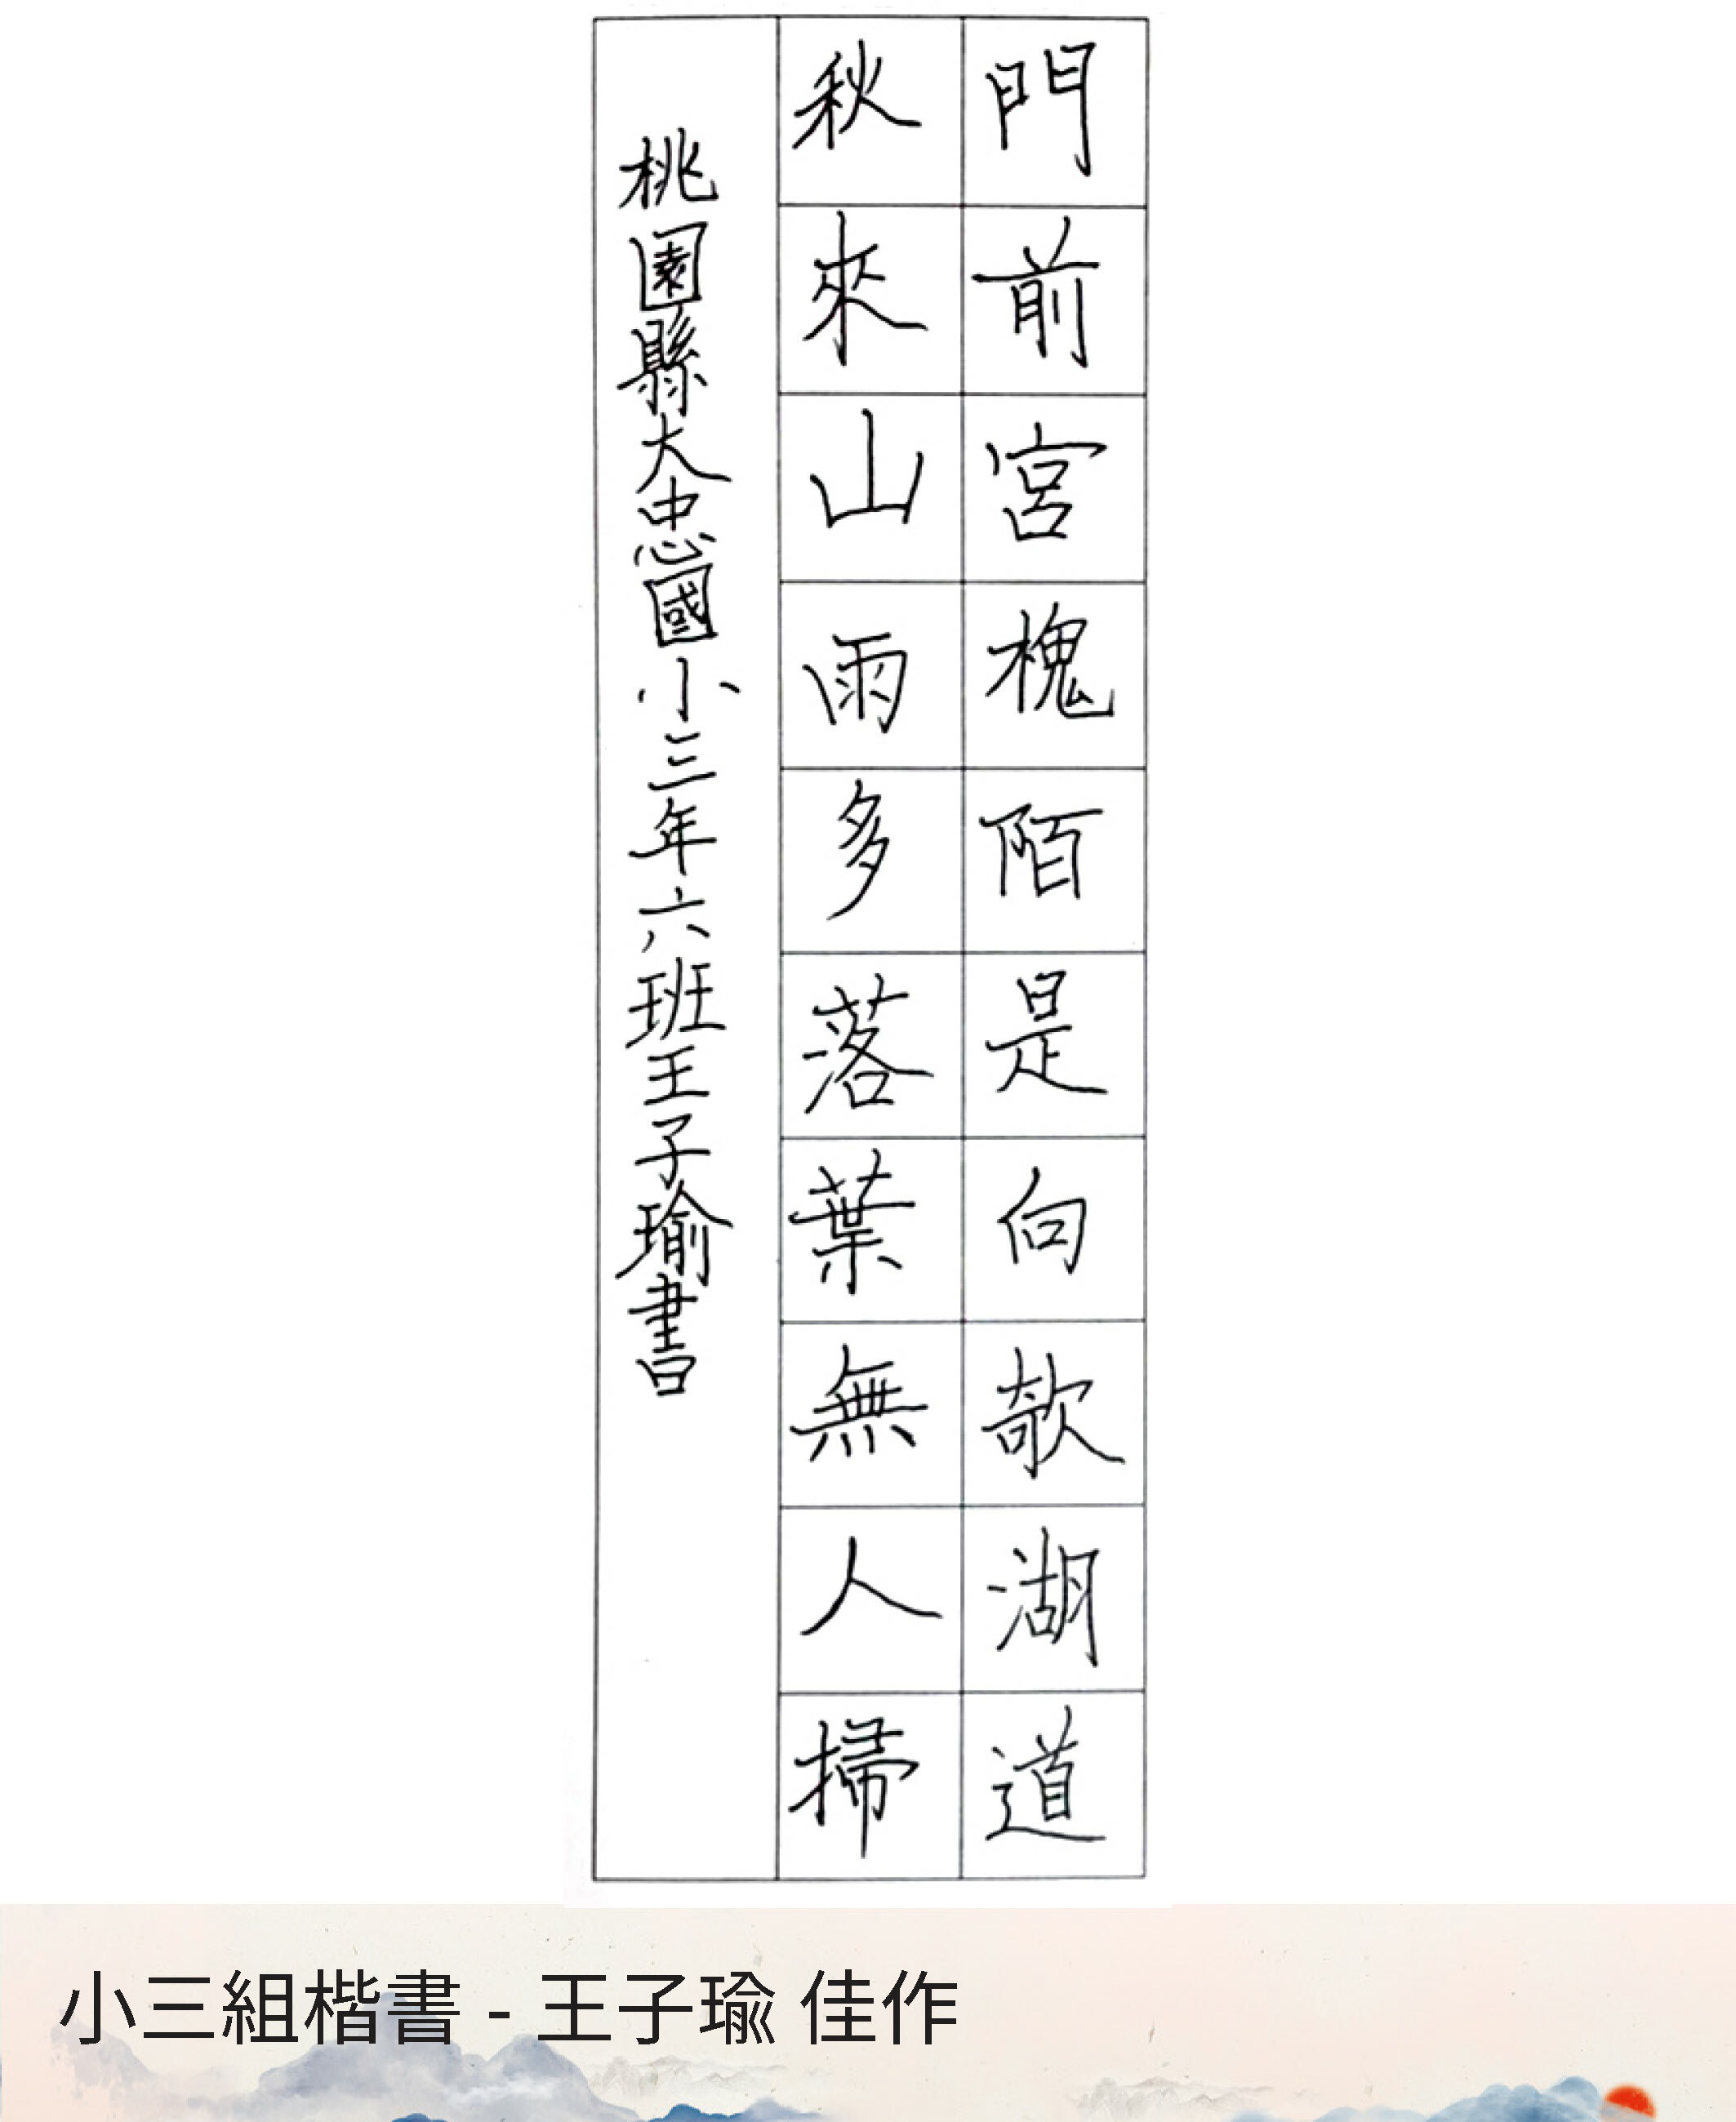 門前宮槐陌是向欹湖道
秋來山雨多落葉無人掃
桃園縣大忠國小三年六班王子瑜書
小三組楷書 - 王子瑜 佳作